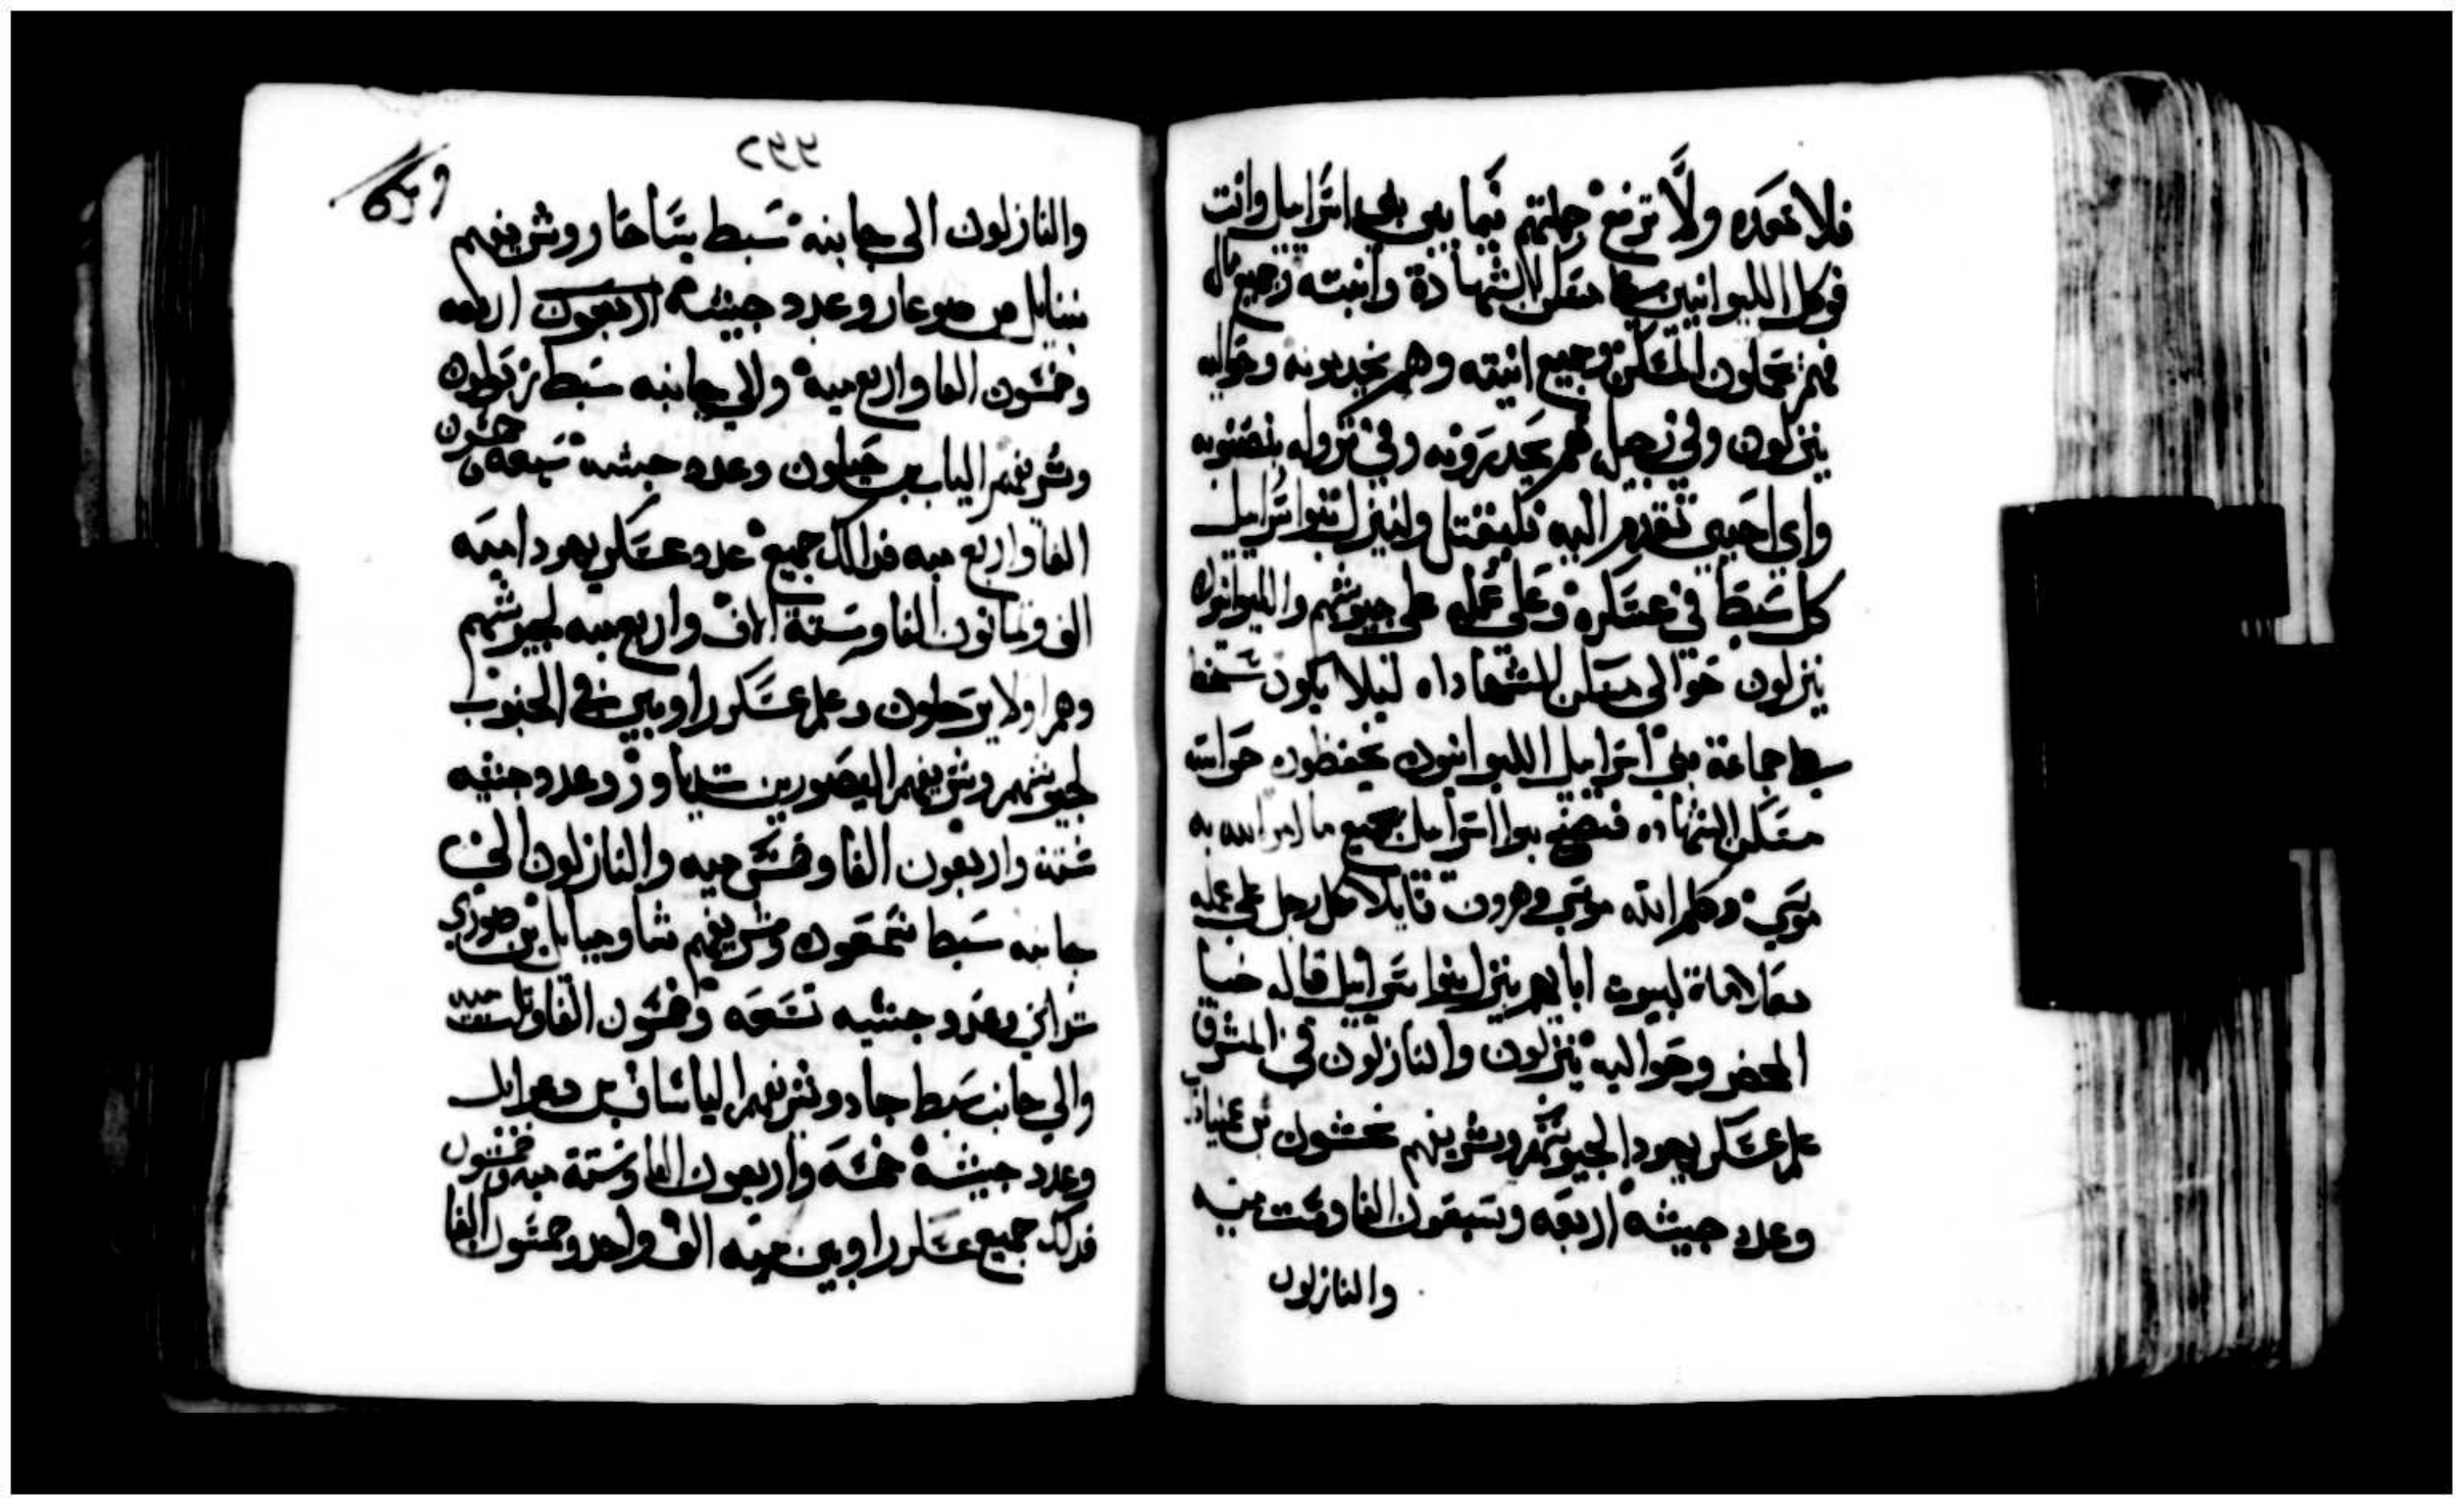 فلا تعده ولا ترفع جملتهم فيما بين بني اسراييل وانت
فوكل الليوانيين على مسكن الشهادة وانيته وجميع ماله
فهم يحملون المسكن وجميع انيته وهم يخدمونه وحواليه
ينزلون وفي رحيله هم يحدرونه وفي نزوله ينصبونه
واي اجنبي تقدم اليه فليقتل ولينزل بنوا سراييل
كل سبط في عسكره وعلى عمله على جيوشهم والليوانيون
ينزلون حوالي مسكن الشهاداه ليلا يكون سخط
على جماعة بني اسراييل الليوانيون يحفظون حراسة
مسكن الشهاده فصنع بنوا اسراييل جميع ما امر الله به
موسي وكلم الله موسي وهرون قايلا كل رجل على عمله
بعلاماة لبيوت ابايهم ينزل بنوا سراييل قاله خبا
المحضر وحواليه ينزلون والنازلون في المشرق
علم عسكر يهودا لجيوشهم وشريفهم نحشون بن عميناداب
وعدد جيشه اربعه وسبعون الفا وست ميه
والنازلون
٢٩٩
والنازلون الى جانبه سبط يساخار وشريفهم
نثنايل بن صوعار وعدد جيشه الاربعون اربعه
وخمسون الفا واربع ميه والي جانبه سبط زبولون
وشريفهم الياب بن حيلون وعدد جيشه سبعه وخمسون
الفا واربع ميه فدالك جميع عدد عسكر يهودا ميه
الف وثمانون الفا وستة الاف واربع ميه لجيوشهم
وهم اولا يرحلون وعلم عسكر راوبين في الجنوب
لجيوشهم وشريفهم اليصور بن شدياور وعدد جيشه
ستة واربعون الفا وخمس ميه والنازلون الي
جانبه سبط شمعون وشريفهم شاوميايل بن صوري
شداي وعدد جيشه تسعه وخمسون الفا وثلث ميه
والي جانبه سبط جاد وشريفهم الياساف بن دعوايل
وعدد جيشه خمسه واربعون الفا وستة ميه وخمسون
فدلك جميع عسكر راوبين ميه الف واحد وخمسون الفا